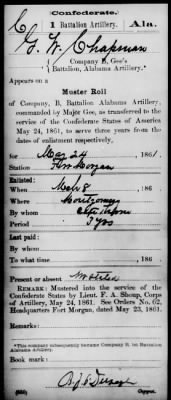 Confederate.
C 1 Battalion Artillery. Ala.
G. W. Chapman
Company B, Gee's
Battalion, Alabama Artillery.*
Appears on a
Muster Roll
of Company, B, Battalion Alabama Artillery,
commanded by Major Gee, as transferred to the
service of the Confederate States of America
May 24, 1861, to serve three years from the
dates of enlistment respectively,
for May 24, 1861.
Station Fort Morgan
Enlisted:
When 8, 186
Where Montgomery
By whom
Period 3 yrs
Last paid:
By whom
To what time , 186
Present or absent
REMARK: Mustered into the service of the
Confederate States by Lieut. F. A. Shoup, Corps
of Artillery, May 24, 1861. See Orders No. 62,
Headquarters Fort Morgan, dated May 23, 1861.
Remarks:
*This company subsequently became Company B, 1st Battalion
Alabama Artillery.
Book mark:
Copyist.